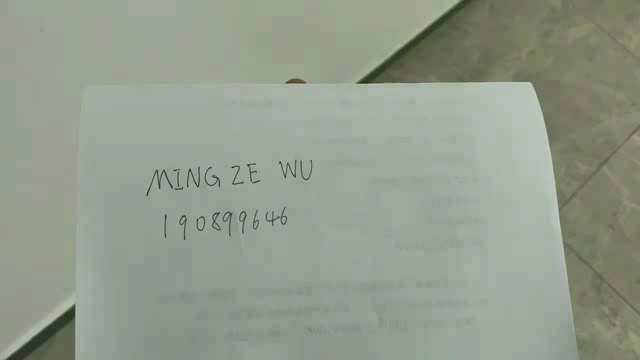 MINGZE WU
190899646